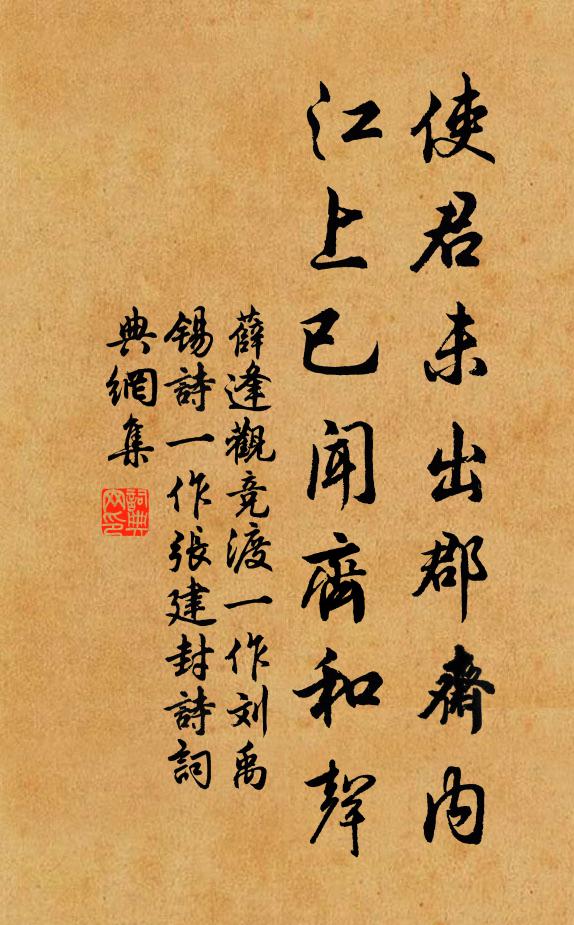 使君未出郡齋内
江上已聞齊和聲
薛逢觀竞渡一作刘禹
锡詩一作張建封詩詞
典網集
詞典
网印